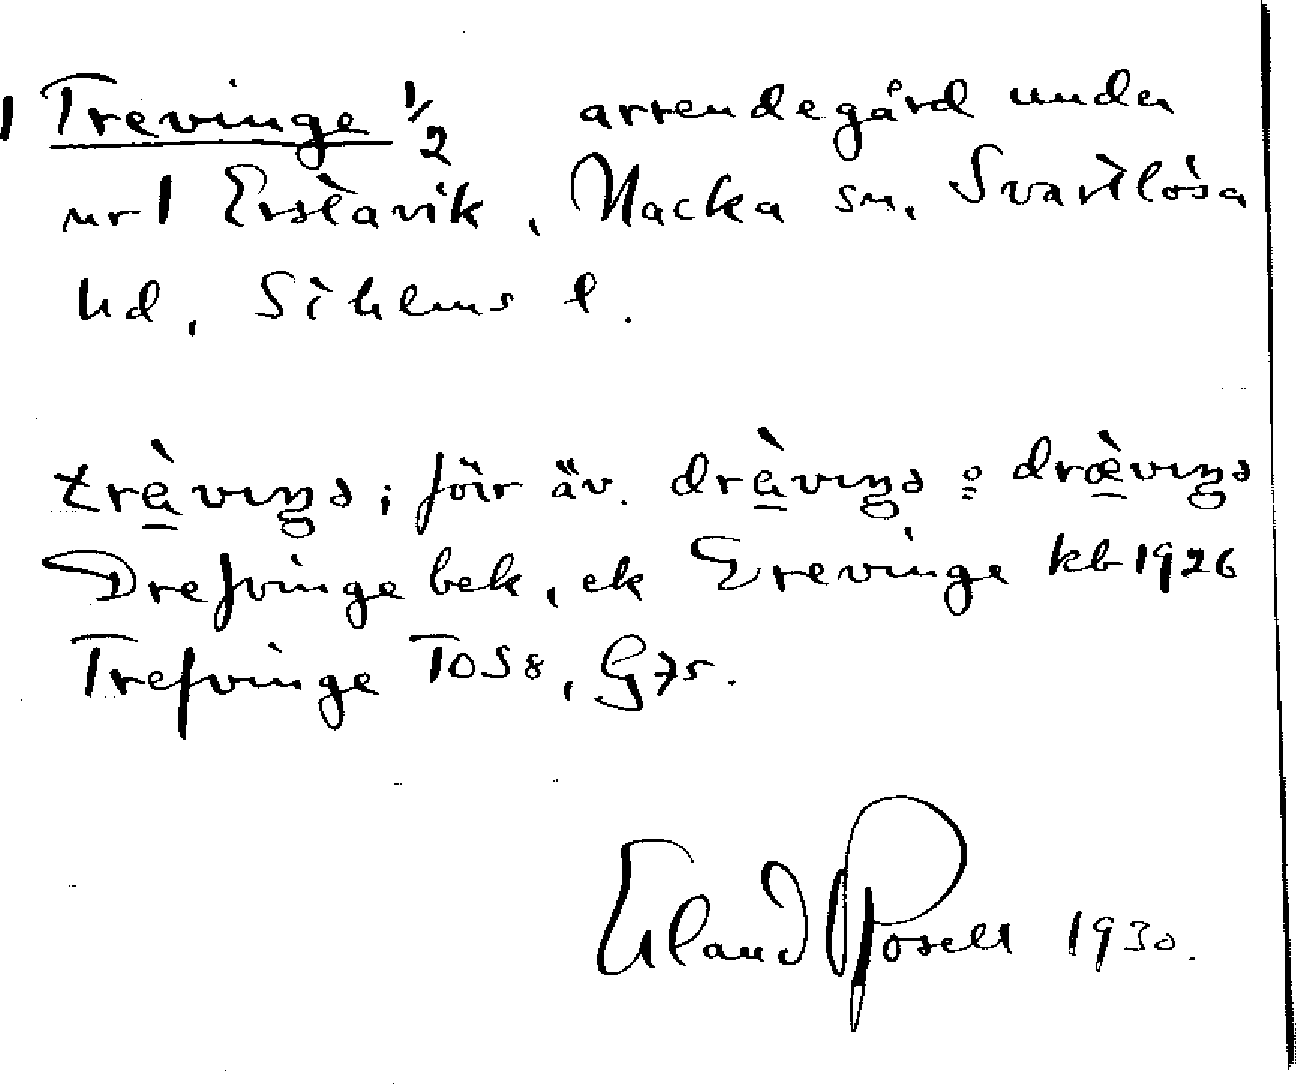 1 Trevinge 1/2 arrendegård under
nr 1 Erstavik, Nacka sn, Svartlösa
hd, Sthlms l.
trè̱vıŋə; förr äv. drè̱vıŋə o dræ̱̀vıŋə
Drefvinge bek, ek Erevinge kb 1926
Trefvinge TOS 8, G 75.
Erland Rosell 1930.